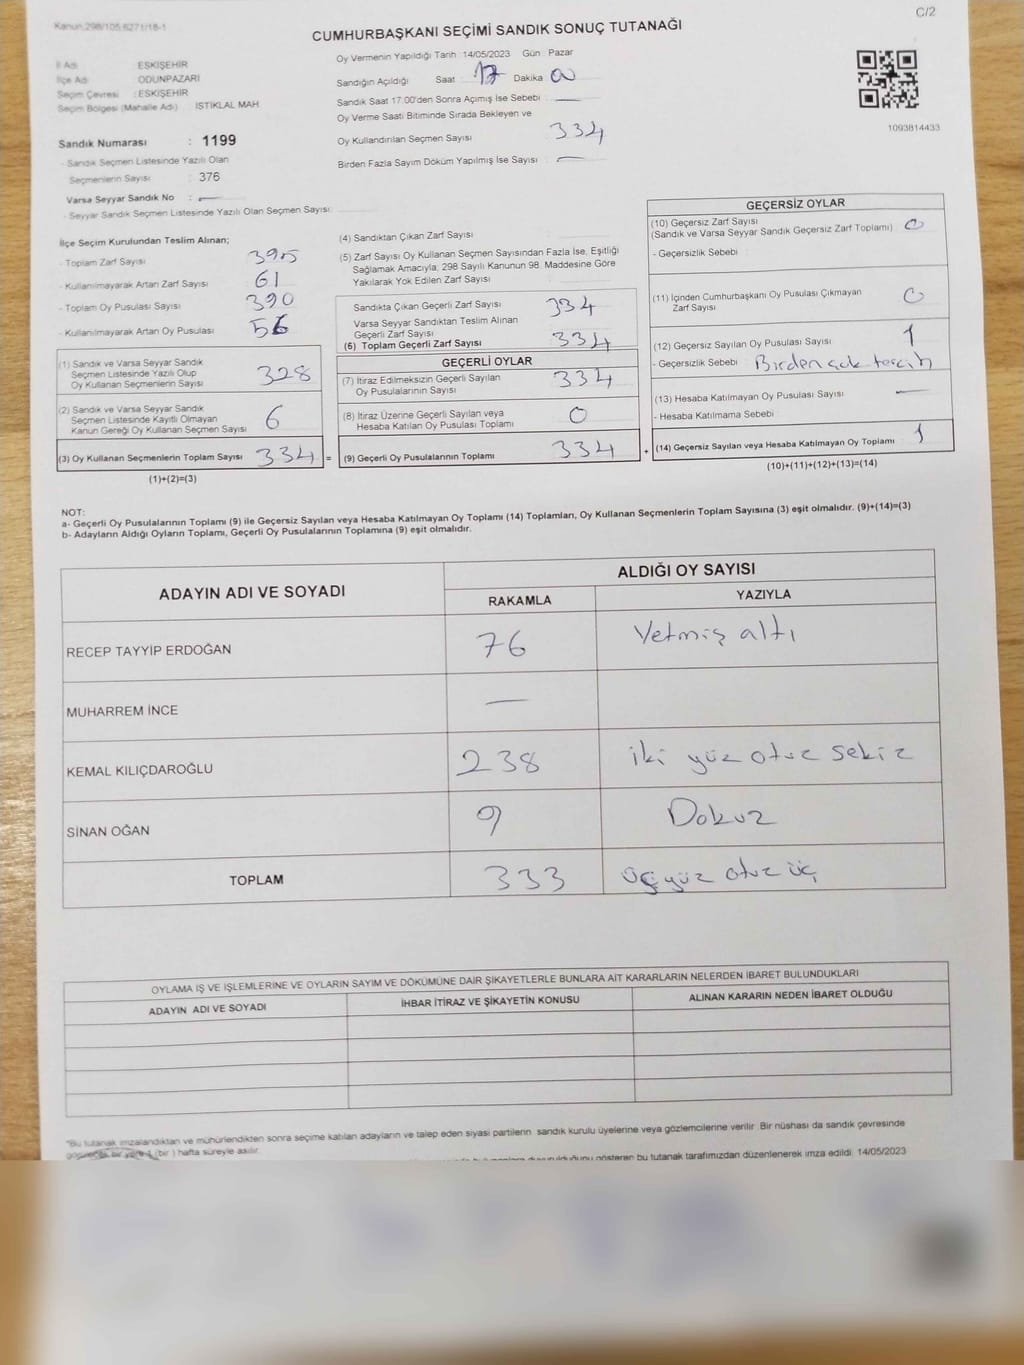 Kanun:298/105,6271/18-1
C/2
CUMHURBAŞKANI SEÇİMİ SANDIK SONUÇ TUTANAĞI
İl Adı : ESKİŞEHİR
İlçe Adı : ODUNPAZARI
Seçim Çevresi : ESKİŞEHİR
Seçim Bölgesi (Mahalle Adı) : İSTİKLAL MAH
Sandık Numarası : 1199
- Sandık Seçmen Listesinde Yazılı Olan
Seçmenlerin Sayısı : 376
Varsa Seyyar Sandık No : —
- Seyyar Sandık Seçmen Listesinde Yazılı Olan Seçmen Sayısı:
Oy Vermenin Yapıldığı Tarih :14/05/2023 Gün : Pazar
Sandığın Açıldığı Saat 17 Dakika 00
Sandık Saat 17:00'den Sonra Açımış İse Sebebi : —
Oy Verme Saati Bitiminde Sırada Bekleyen ve
Oy Kullandırılan Seçmen Sayısı 334
Birden Fazla Sayım Döküm Yapılmış İse Sayısı : —
1093814433
İlçe Seçim Kurulundan Teslim Alınan;
- Toplam Zarf Sayısı 395
- Kullanılmayarak Artan Zarf Sayısı 61
- Toplam Oy Pusulası Sayısı 390
- Kullanılmayarak Artan Oy Pusulası 56
(1) Sandık ve Varsa Seyyar Sandık
Seçmen Listesinde Yazılı Olup
Oy Kullanan Seçmenlerin Sayısı 328
(2) Sandık ve Varsa Seyyar Sandık
Seçmen Listesinde Kayıtlı Olmayan
Kanun Gereği Oy Kullanan Seçmen Sayısı 6
(3) Oy Kullanan Seçmenlerin Toplam Sayısı 334 =
(1)+(2)=(3)
(4) Sandıktan Çıkan Zarf Sayısı
(5) Zarf Sayısı Oy Kullanan Seçmen Sayısından Fazla İse, Eşitliği
Sağlamak Amacıyla; 298 Sayılı Kanunun 98. Maddesine Göre
Yakılarak Yok Edilen Zarf Sayısı
Sandıkta Çıkan Geçerli Zarf Sayısı 334
Varsa Seyyar Sandıktan Teslim Alınan
Geçerli Zarf Sayısı
(6) Toplam Geçerli Zarf Sayısı 334
GEÇERLİ OYLAR
(7) İtiraz Edilmeksizin Geçerli Sayılan
Oy Pusulalarının Sayısı 334
(8) İtiraz Üzerine Geçerli Sayılan veya
Hesaba Katılan Oy Pusulası Toplamı 0
(9) Geçerli Oy Pusulalarının Toplamı 334 +
GEÇERSİZ OYLAR
(10) Geçersiz Zarf Sayısı
(Sandık ve Varsa Seyyar Sandık Geçersiz Zarf Toplamı) 0
- Geçersizlik Sebebi
(11) İçinden Cumhurbaşkanı Oy Pusulası Çıkmayan
Zarf Sayısı 0
(12) Geçersiz Sayılan Oy Pusulası Sayısı 1
- Geçersizlik Sebebi Birden çok tercih
(13) Hesaba Katılmayan Oy Pusulası Sayısı —
- Hesaba Katılmama Sebebi
(14) Geçersiz Sayılan veya Hesaba Katılmayan Oy Toplamı 1
(10)+(11)+(12)+(13)=(14)
NOT:
a- Geçerli Oy Pusulalarının Toplamı (9) ile Geçersiz Sayılan veya Hesaba Katılmayan Oy Toplamı (14) Toplamları, Oy Kullanan Seçmenlerin Toplam Sayısına (3) eşit olmalıdır. (9)+(14)=(3)
b- Adayların Aldığı Oyların Toplamı, Geçerli Oy Pusulalarının Toplamına (9) eşit olmalıdır.
ADAYIN ADI VE SOYADI ALDIĞI OY SAYISI
RAKAMLA YAZIYLA
RECEP TAYYİP ERDOĞAN 76 Yetmiş altı
MUHARREM İNCE —
KEMAL KILIÇDAROĞLU 238 iki yüz otuz sekiz
SİNAN OĞAN 9 Dokuz
TOPLAM 333 üçyüz otuz üç
OYLAMA İŞ VE İŞLEMLERİNE VE OYLARIN SAYIM VE DÖKÜMÜNE DAİR ŞİKAYETLERLE BUNLARA AİT KARARLARIN NELERDEN İBARET BULUNDUKLARI
ADAYIN ADI VE SOYADI İHBAR İTİRAZ VE ŞİKAYETİN KONUSU ALINAN KARARIN NEDEN İBARET OLDUĞU
*Bu tutanak imzalandıktan ve mühürlendikten sonra seçime katılan adayların ve talep eden siyasi partilerin sandık kurulu üyelerine veya gözlemcilerine verilir. Bir nüshası da sandık çevresinde
görülecek bir yere 1 (bir ) hafta süreyle asılır.
gösteren bu tutanak tarafımızdan düzenlenerek imza edildi. 14/05/2023